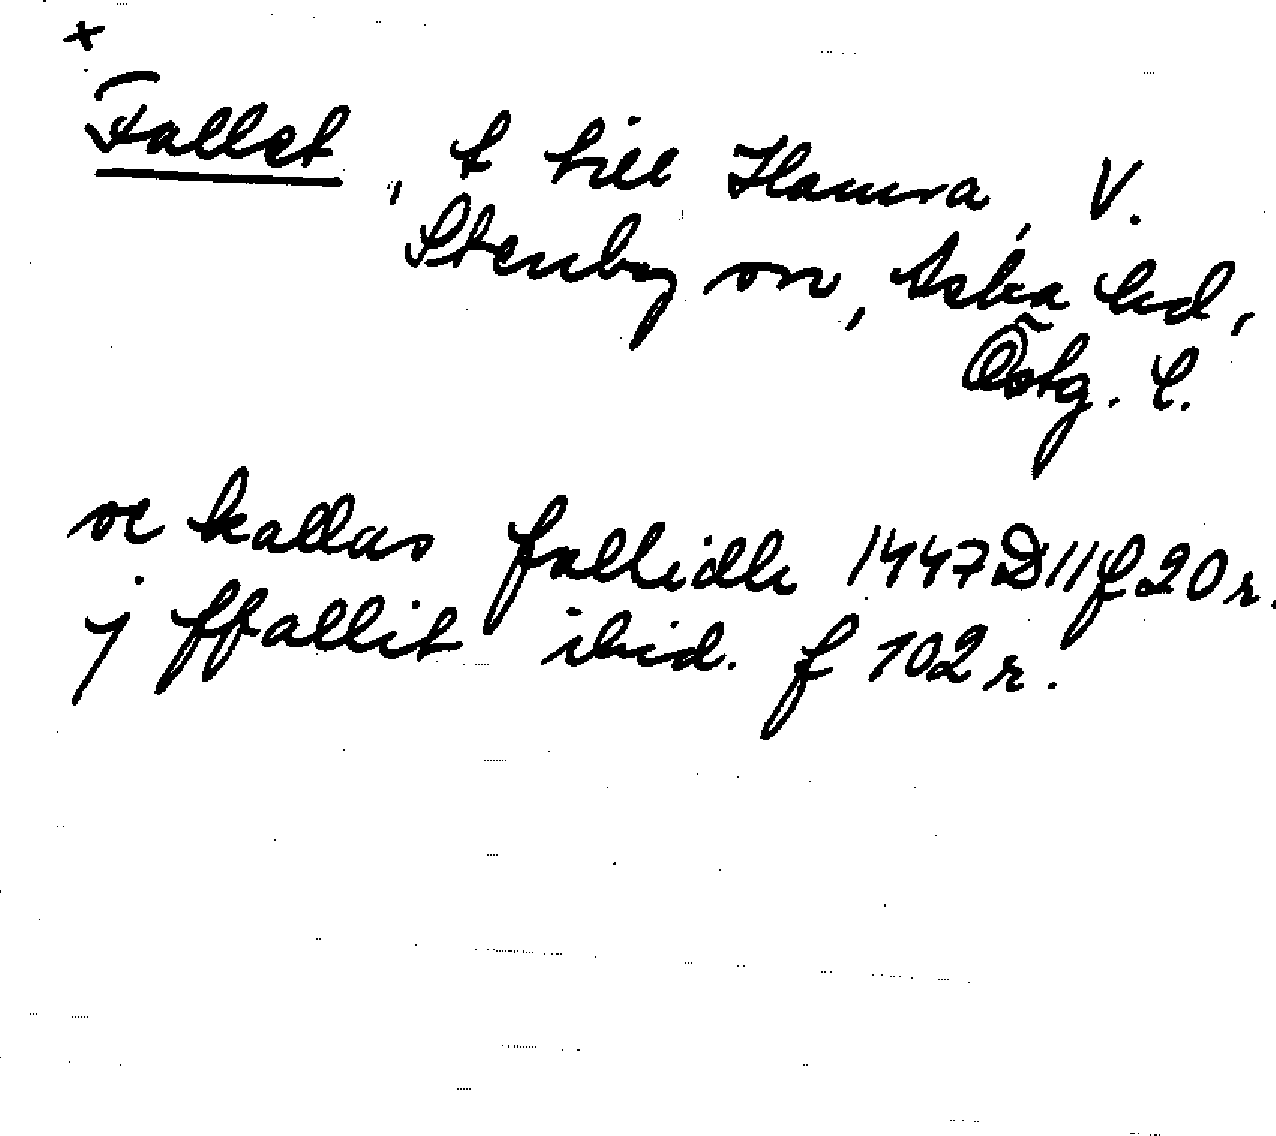 x
Fallet, t till Hamra, V.
Stenby sn, Aska hd,
Östg. l.
oc kallas fallidh 1447 D 11 f 20 r.
j ffallit ibid. f 102 r.